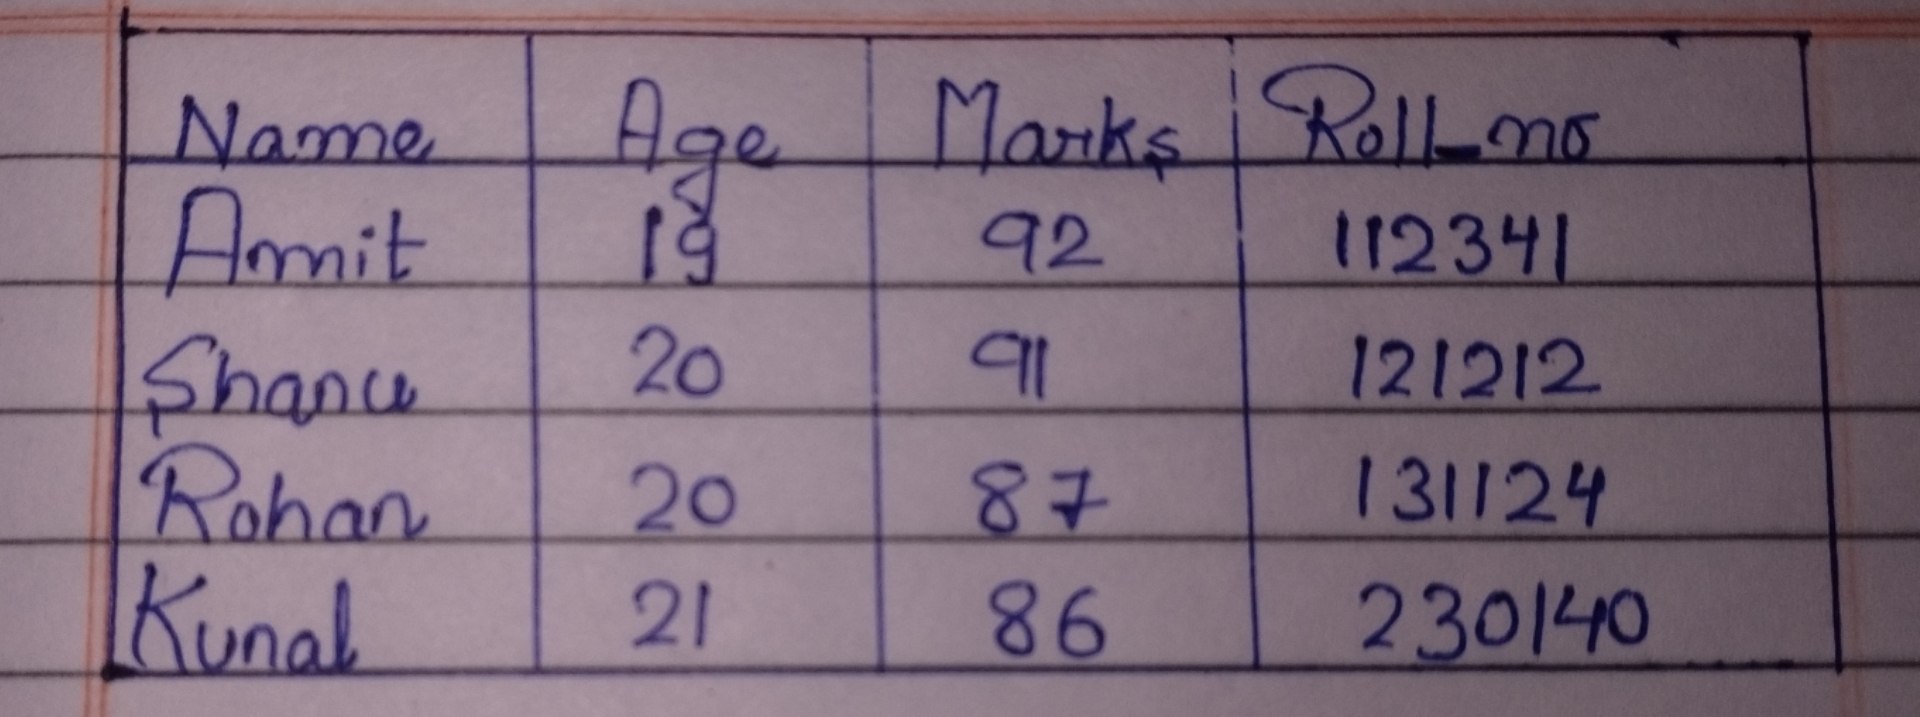 Name Age Marks Roll_no
Amit 19 92 112341
Shanu 20 91 121212
Rohan 20 87 131124
Kunal 21 86 230140